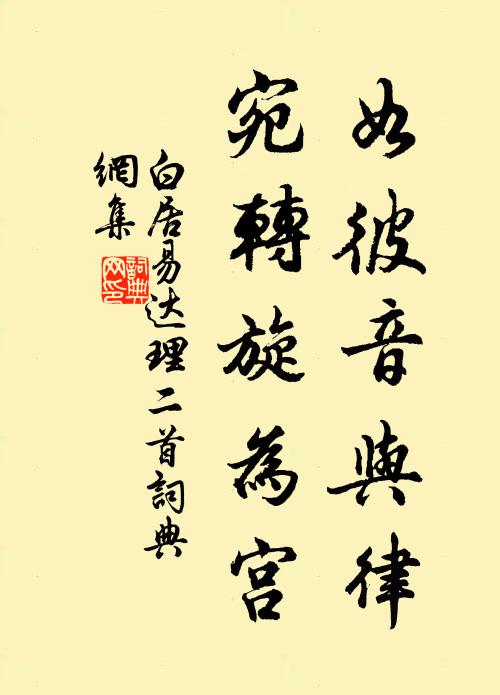 如彼音與律
宛轉旋為宫
白居易达理二首詞典
網集
詞典
网印